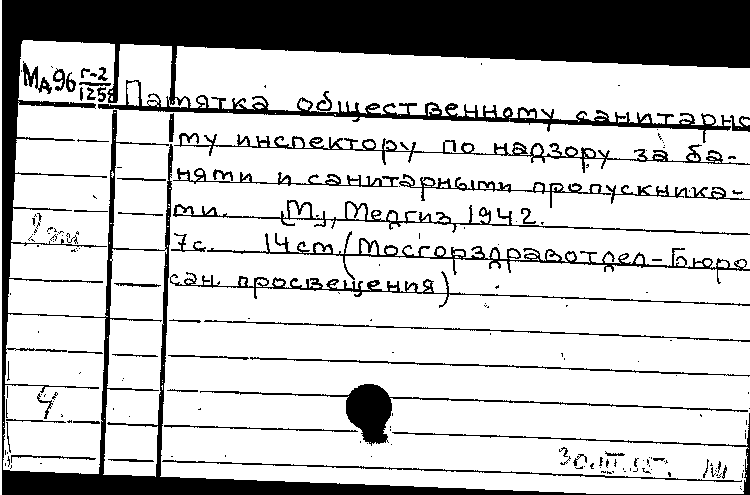 МА96 Г-2/1258
Памятка общественному санитарно
му инспектору по надзору за ба-
нями и санитарными пропускника-
ми. [М.], Медгиз, 1942.
2 эк
7с. 14см. (Мосгорздравотдел-Бюро
сан. просвещения)
4.
30.III.55.